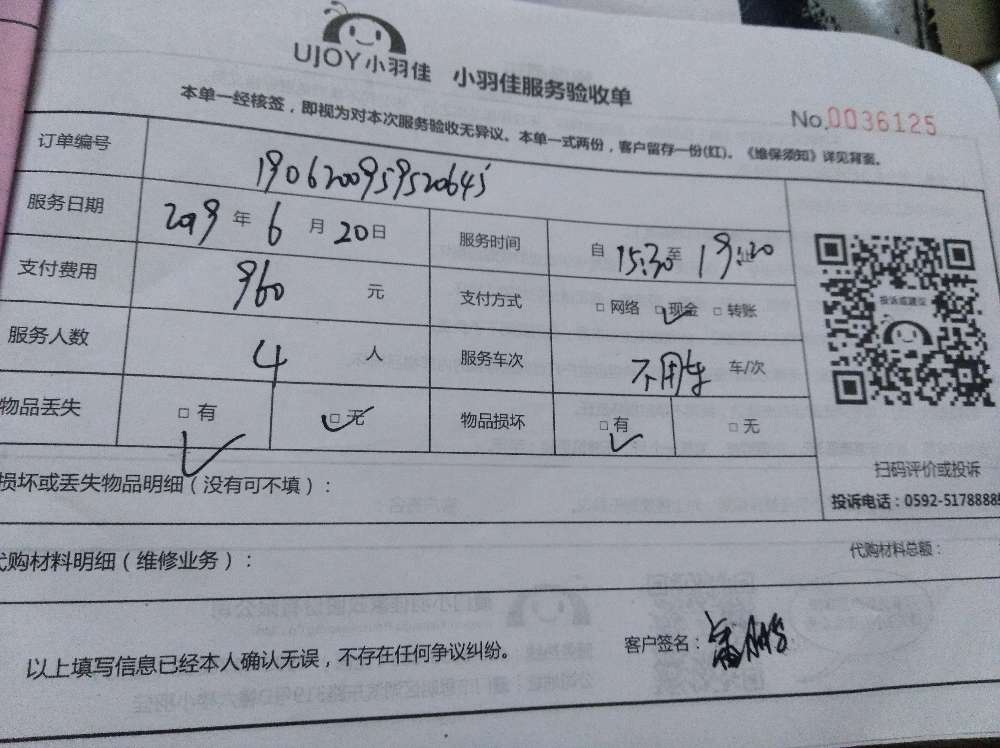 UJOY小羽佳 小羽佳服务验收单
本单一经核签，即视为对本次服务验收无异议。本单一式两份，客户留存一份(红)。《维保须知》详见背面。
No.0036125
订单编号 1906200959520645
服务日期 2019年6月20日 服务时间 自15:30至19:30
支付费用 960元 支付方式 □网络 □现金 □转账
服务人数 4人 服务车次 不用车 车/次
物品丢失 □有 □无 物品损坏 □有 □无
投诉或建议
扫码评价或投诉
投诉电话：0592-5178885
损坏或丢失物品明细（没有可不填）：
代购材料明细（维修业务）： 代购材料总额：
以上填写信息已经本人确认无误，不存在任何争议纠纷。 客户签名：